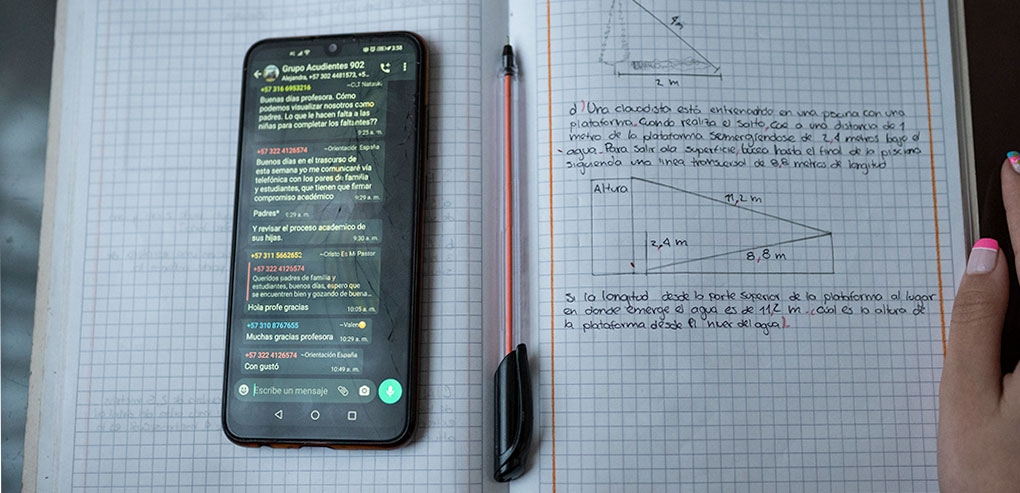 3:58
Grupo Acudientes 902
Alejandra, +57 302 4481573, +5...
+57 316 6953216
Buenas dias profesora. Cómo
podemos visualizar nosotros como
padres. Lo que le hacen falta a las
niñas para completar los faltantes??
9:25 a. m.
+57 322 4126574 ~Orientación España
Buenos días en el trascurso de
esta semana yo me comunicaré vía
telefónica con los pares de familia
y estudiantes, que tienen que firmar
compromiso académico 9:29 a. m.
Padres* 9:29 a. m.
Y revisar el proceso academico de
sus hijas. 9:30 a. m.
+57 311 5662652 ~Cristo Es Mi Pastor
+57 322 4126574
Queridos padres de familia y
estudiantes, buenos días, espero que
se encuentren bien y gozando de buena...
Hola profe gracias 10:05 a. m.
+57 310 8767655 ~Valen
Muchas gracias profesora 10:29 a. m.
+57 322 4126574 ~Orientación España
Con gustó 10:49 a. m.
Escribe un mensaje
2 m
d) Una clavadista está entrenando en una piscina con una
plataforma. Cuando realiza el salto, cae a una distancia de 1
metro de la plataforma sumergiendose de 2,4 metros bajo el
agua. Para salir ala superficie, busea hasta el final de la piscina
siguiendo una linea transversal de 8,8 metros de longitud
Altura
11,2 m
2,4 m
8,8 m
Si la longitud desde la parte superior de la plataforma al lugar
en donde emerge el agua es de 11,2 m. ¿Cual es la altura de
la plataforma desde el nivel del agua?